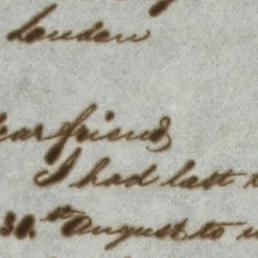 London
ear friend
I had last
30.th August to